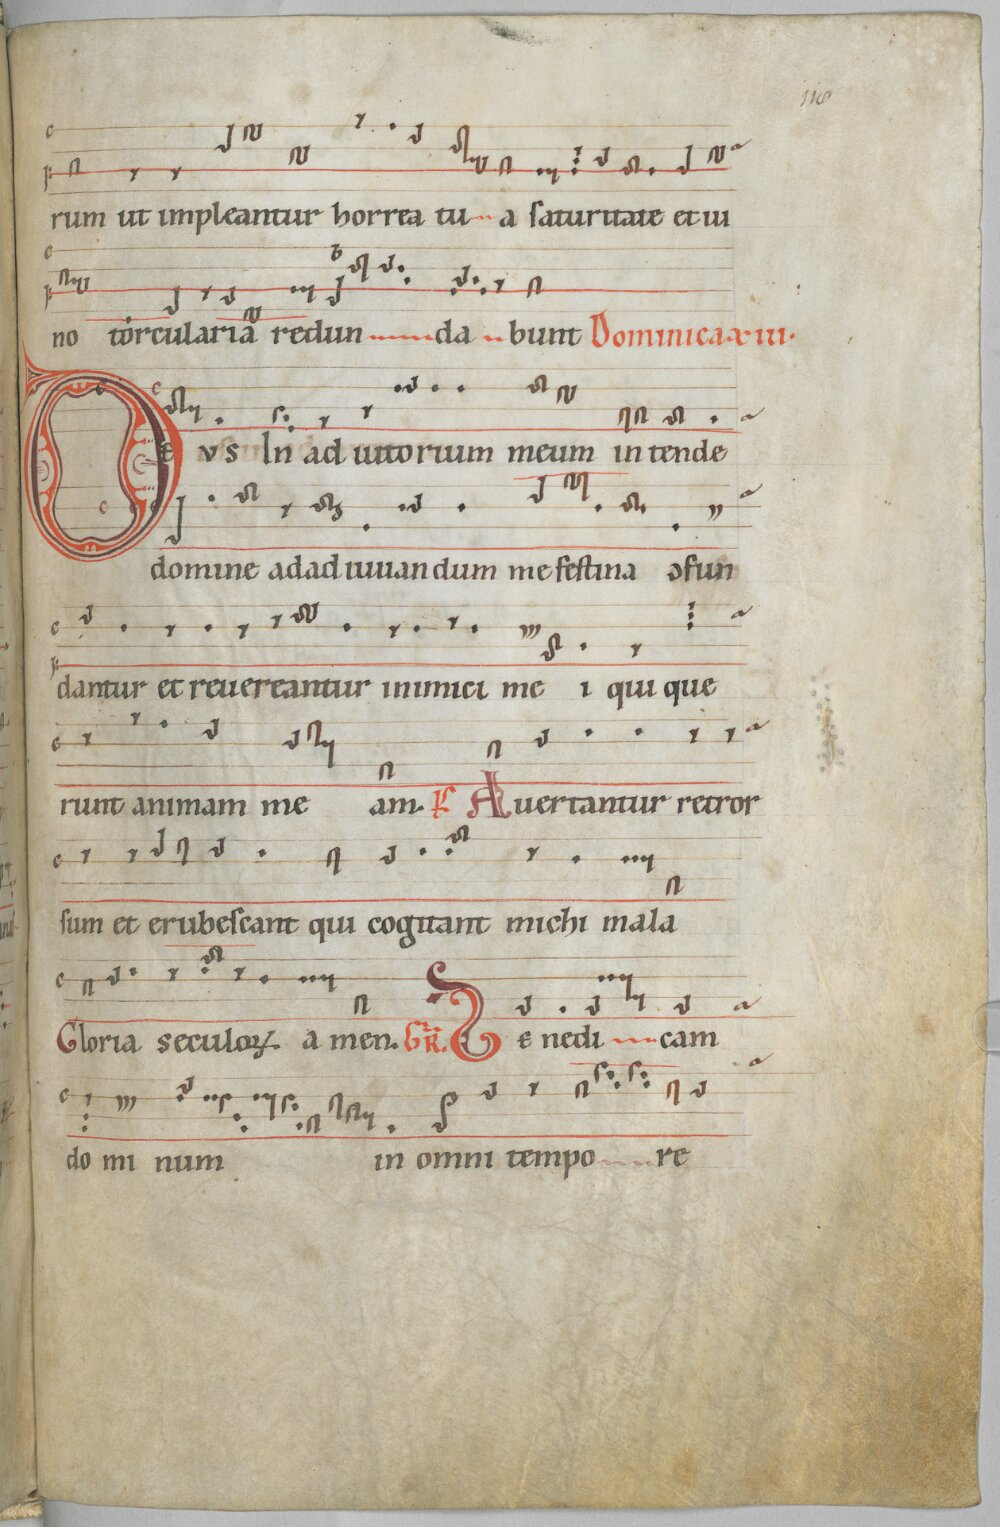 rum ut impleantur horrea tu a saturitate et ui
no torcularia redun da bunt Dominica xiii.
DEVS In ad iutorium meum in tende
domine adad iuuan dum me festina ɔfun
dantur et reuereantur inimici me i qui que
runt animam me am. Auertantur retror
sum et erubescant qui cogitant michi mala
Gloria seculoꝝ a men. GR. Be nedi cam
do mi num in omni tempo re